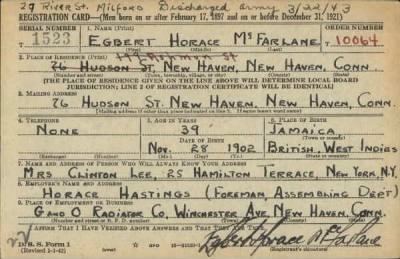 29 River St. Milford Discharged army 3/22/43
REGISTRATION CARD—(Men born on or after February 17, 1897 and on or before December 31, 1921)
SERIAL NUMBER 1. NAME (Print) ORDER NUMBER
T 1523 EGBERT HORACE McFARLANE 10064
(First) (Middle) (Last)
2. PLACE OF RESIDENCE (Print)
76 HUDSON ST. NEW HAVEN, NEW HAVEN, CONN.
(Number and street) (Town, township, village, or city) (County) (State)
[THE PLACE OF RESIDENCE GIVEN ON THE LINE ABOVE WILL DETERMINE LOCAL BOARD
JURISDICTION; LINE 2 OF REGISTRATION CERTIFICATE WILL BE IDENTICAL]
3. MAILING ADDRESS
76 HUDSON ST. NEW HAVEN, NEW HAVEN, CONN.
(Mailing address if other than place indicated on line 2. If same insert word same)
4. TELEPHONE 5. AGE IN YEARS 6. PLACE OF BIRTH
NONE 39 JAMAICA
DATE OF BIRTH (Town or county)
NOV. 28 1902 BRITISH, WEST INDIES
(Exchange) (Number) (Mo.) (Day) (Yr.) (State or country)
7. NAME AND ADDRESS OF PERSON WHO WILL ALWAYS KNOW YOUR ADDRESS
MRS. CLINTON LEE, 25 HAMILTON TERRACE, NEW YORK, N.Y.
8. EMPLOYER'S NAME AND ADDRESS
HORACE HASTINGS (FOREMAN, ASSEMBLING DEPT)
9. PLACE OF EMPLOYMENT OR BUSINESS
G AND O RADIATOR CO, WINCHESTER AVE, NEW HAVEN, CONN.
(Number and street or R. F. D. number) (Town) (County) (State)
I AFFIRM THAT I HAVE VERIFIED ABOVE ANSWERS AND THAT THEY ARE TRUE.
D. S. S. Form 1 GPO Egbert Horace McFarlane
(Revised 1-1-42) (over) (Registrant's signature)